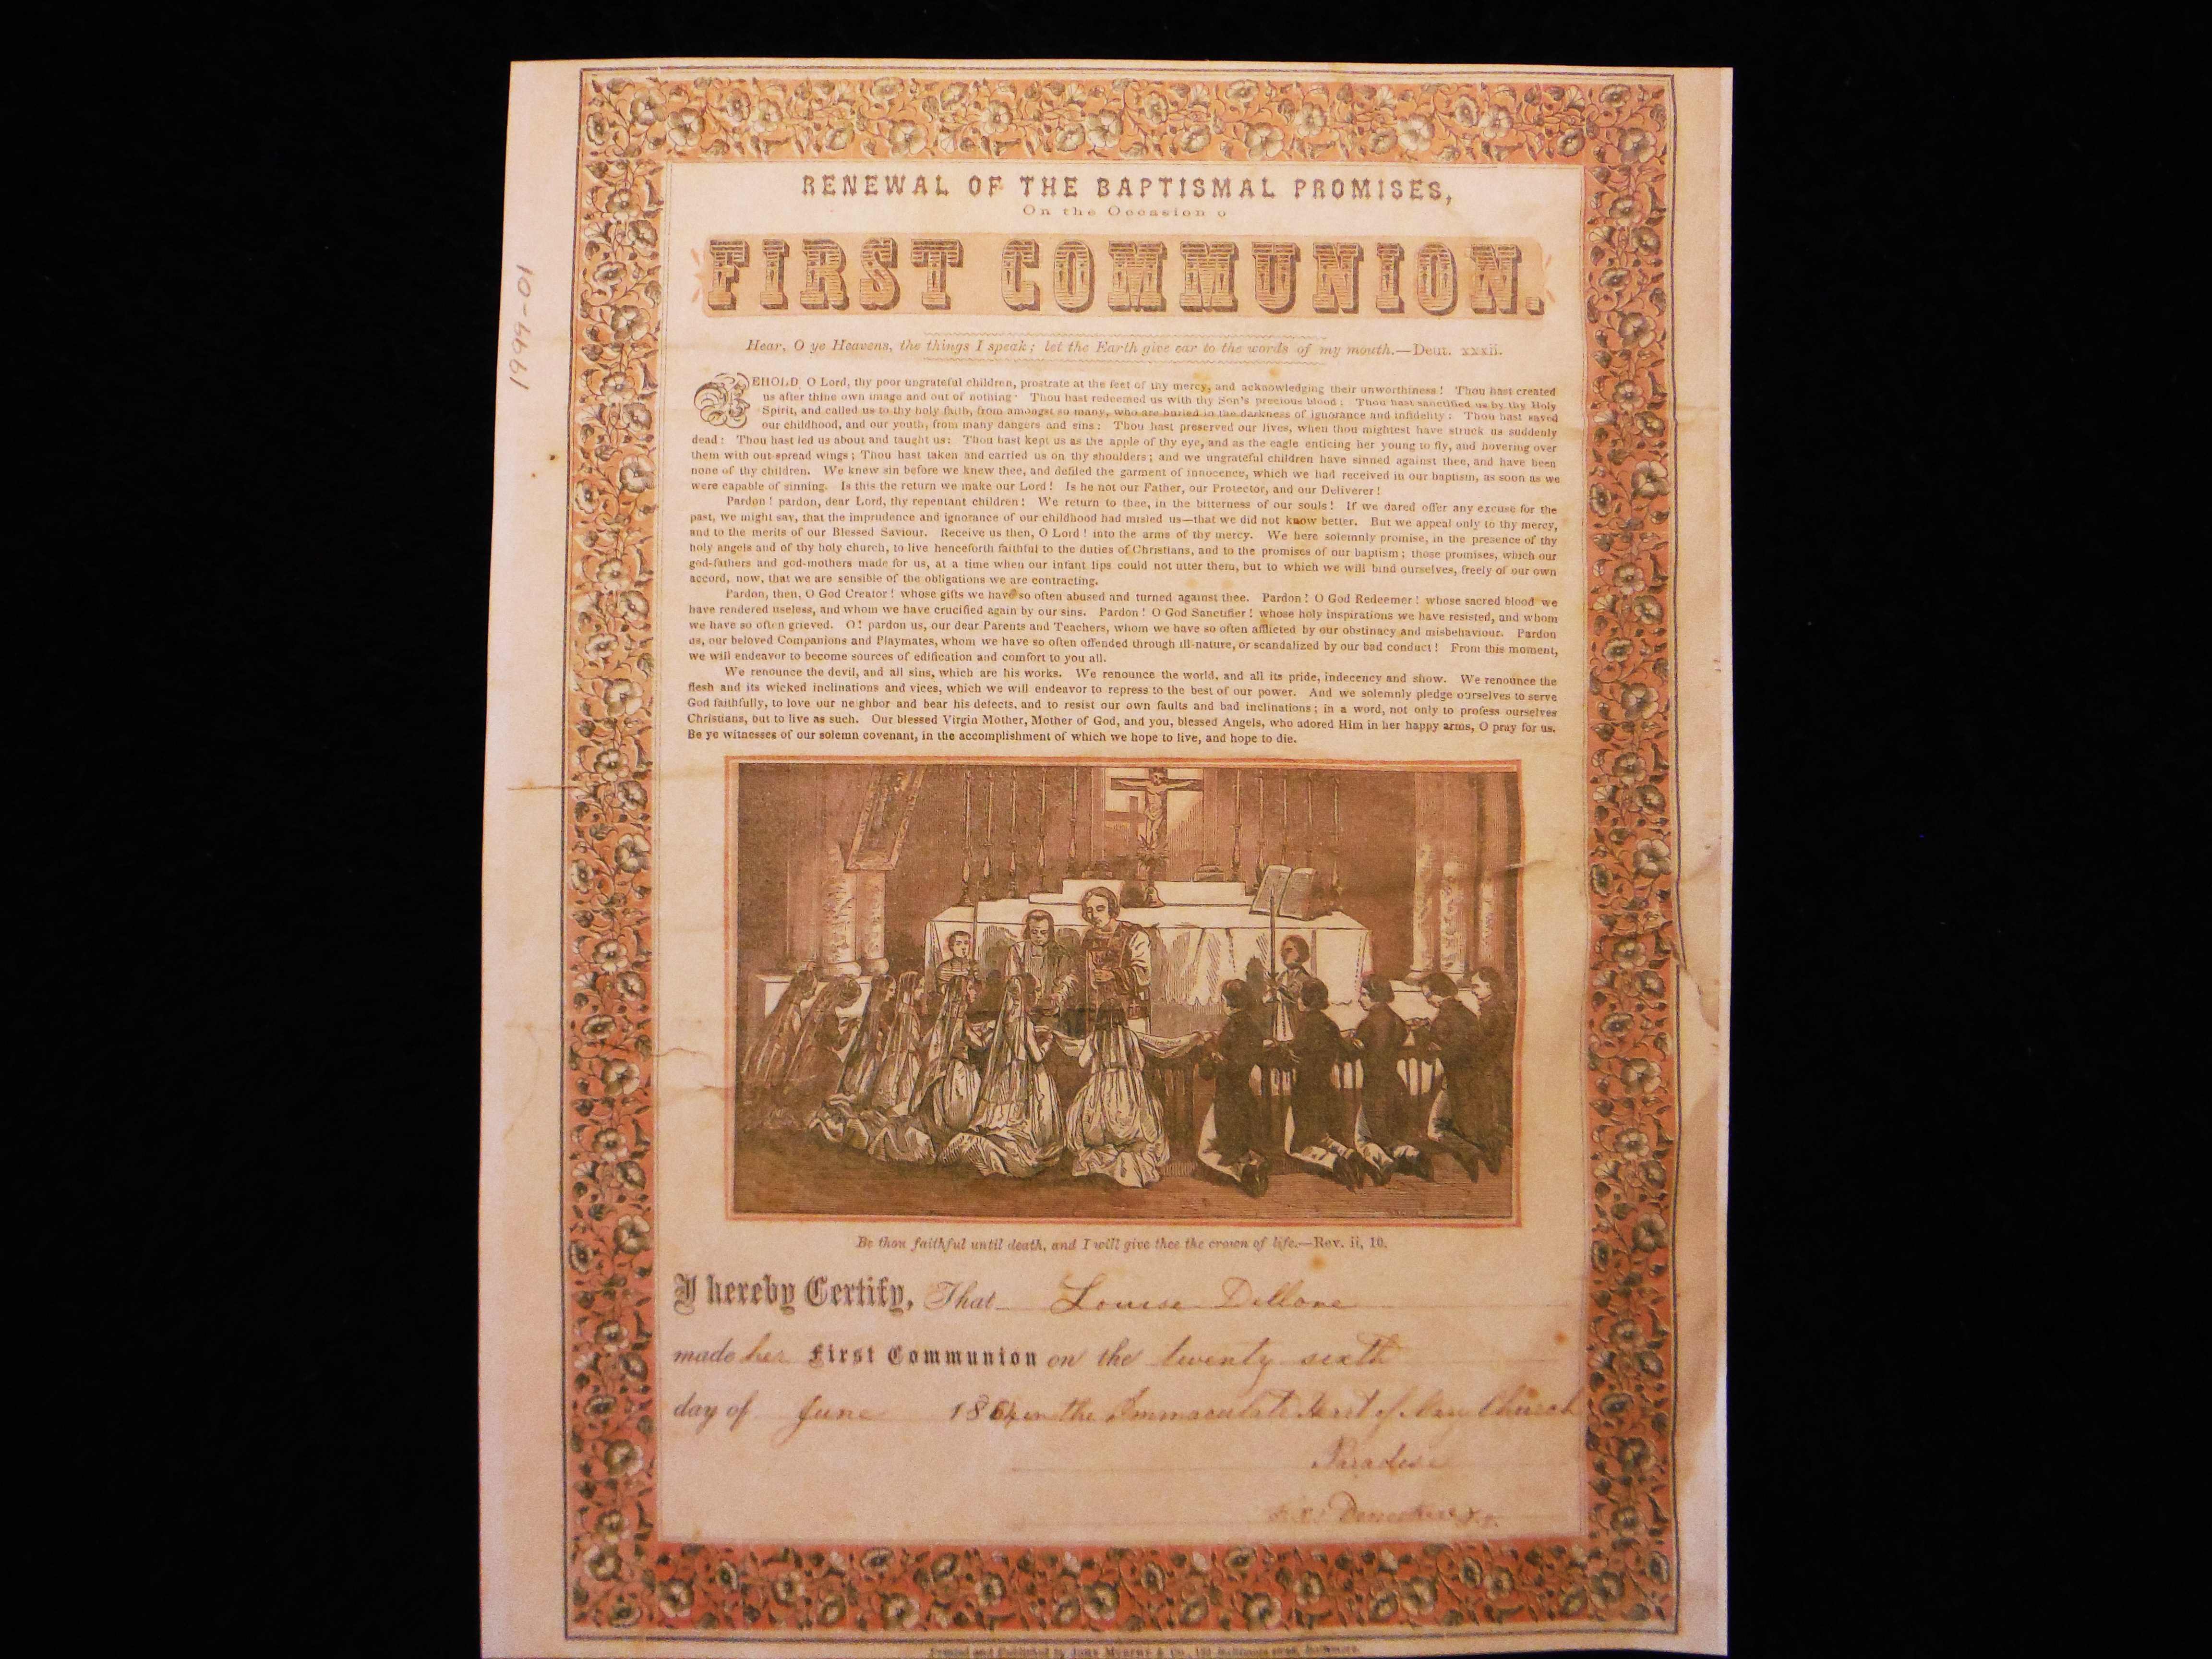 1999-01
RENEWAL OF THE BAPTISMAL PROMISES,
On the Occasion o
FIRST COMMUNION.
Hear, O ye Heavens, the things I speak; let the Earth give ear to the words of my mouth.—Deut. xxxii.
BEHOLD, O Lord, thy poor ungrateful children, prostrate at the feet of thy mercy, and acknowledging their unworthiness! Thou hast created
us after thine own image and out of nothing: Thou hast redeemed us with thy Son's precious blood: Thou hast sanctified us by thy Holy
Spirit, and called us to thy holy faith, from amongst so many, who are buried in the darkness of ignorance and infidelity: Thou hast saved
our childhood, and our youth, from many dangers and sins: Thou hast preserved our lives, when thou mightest have struck us suddenly
dead: Thou hast led us about and taught us: Thou hast kept us as the apple of thy eye, and as the eagle enticing her young to fly, and hovering over
them with out-spread wings; Thou hast taken and carried us on thy shoulders; and we ungrateful children have sinned against thee, and have been
none of thy children. We knew sin before we knew thee, and defiled the garment of innocence, which we had received in our baptism, as soon as we
were capable of sinning. Is this the return we make our Lord! Is he not our Father, our Protector, and our Deliverer!
Pardon! pardon, dear Lord, thy repentant children! We return to thee, in the bitterness of our souls! If we dared offer any excuse for the
past, we might say, that the imprudence and ignorance of our childhood had misled us—that we did not know better. But we appeal only to thy mercy,
and to the merits of our Blessed Saviour. Receive us then, O Lord! into the arms of thy mercy. We here solemnly promise, in the presence of thy
holy angels and of thy holy church, to live henceforth faithful to the duties of Christians, and to the promises of our baptism; those promises, which our
god-fathers and god-mothers made for us, at a time when our infant lips could not utter them, but to which we will bind ourselves, freely of our own
accord, now, that we are sensible of the obligations we are contracting.
Pardon, then, O God Creator! whose gifts we have so often abused and turned against thee. Pardon! O God Redeemer! whose sacred blood we
have rendered useless, and whom we have crucified again by our sins. Pardon! O God Sanctifier! whose holy inspirations we have resisted, and whom
we have so often grieved. O! pardon us, our dear Parents and Teachers, whom we have so often afflicted by our obstinacy and misbehaviour. Pardon
us, our beloved Companions and Playmates, whom we have so often offended through ill-nature, or scandalized by our bad conduct! From this moment,
we will endeavor to become sources of edification and comfort to you all.
We renounce the devil, and all sins, which are his works. We renounce the world, and all its pride, indecency and show. We renounce the
flesh and its wicked inclinations and vices, which we will endeavor to repress to the best of our power. And we solemnly pledge ourselves to serve
God faithfully, to love our neighbor and bear his defects, and to resist our own faults and bad inclinations; in a word, not only to profess ourselves
Christians, but to live as such. Our blessed Virgin Mother, Mother of God, and you, blessed Angels, who adored Him in her happy arms, O pray for us.
Be ye witnesses of our solemn covenant, in the accomplishment of which we hope to live, and hope to die.
Be thou faithful until death, and I will give thee the crown of life.—Rev. ii, 10.
I hereby Certify, That Louise Dellone
made her First Communion on the twenty sixth
day of June 1864 in the Immaculate Heart of Mary Church
Paradise
Printed and Published by John Murphy & Co., 182 Baltimore street, Baltimore.